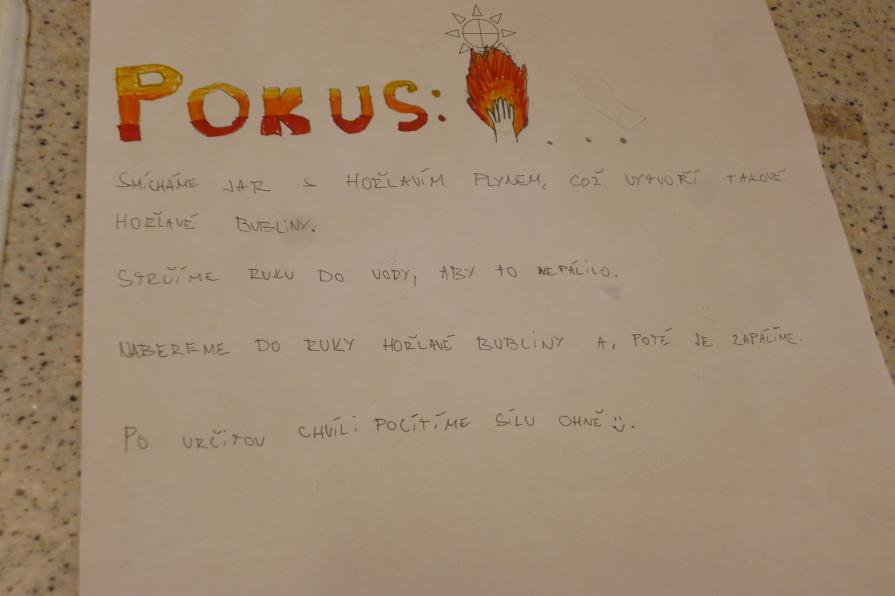 POKUS:
SMÍCHÁME JAR S HOŘLAVÍM PLYNEM, COŽ VYTVOŘÍ TAKOVÉ
HOŘLAVÉ BUBLINY.
STRČÍME RUKU DO VODY, ABY TO NEPÁLILO.
NABEREME DO RUKY HOŘLAVÉ BUBLINY A, POTÉ JE ZAPÁLÍME.
PO URČITOU CHVÍLI POCÍTÍME SÍLU OHNĚ :).